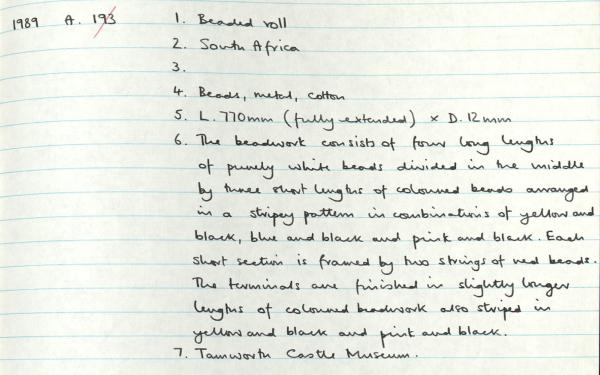 1989 A. 193 1. Beaded roll
2. South Africa
3.
4. Beads, metal, cotton
5. L. 770mm (fully extended) × D. 12mm
6. The beadwork consists of four long lengths
of purely white beads divided in the middle
by three short lengths of coloured beads arranged
in a stripey pattern in combinations of yellow and
black, blue and black and pink and black. Each
short section is framed by two strings of red beads.
The terminals are finished in slightly longer
lengths of coloured beadwork also striped in
yellow and black and pink and black.
7. Tamworth Castle Museum.